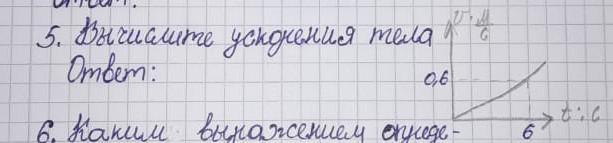 5. Вычислите ускорения тела
Ответ:
υ; м/с
0,6
6
t; c
6. Каким выражением опреде-